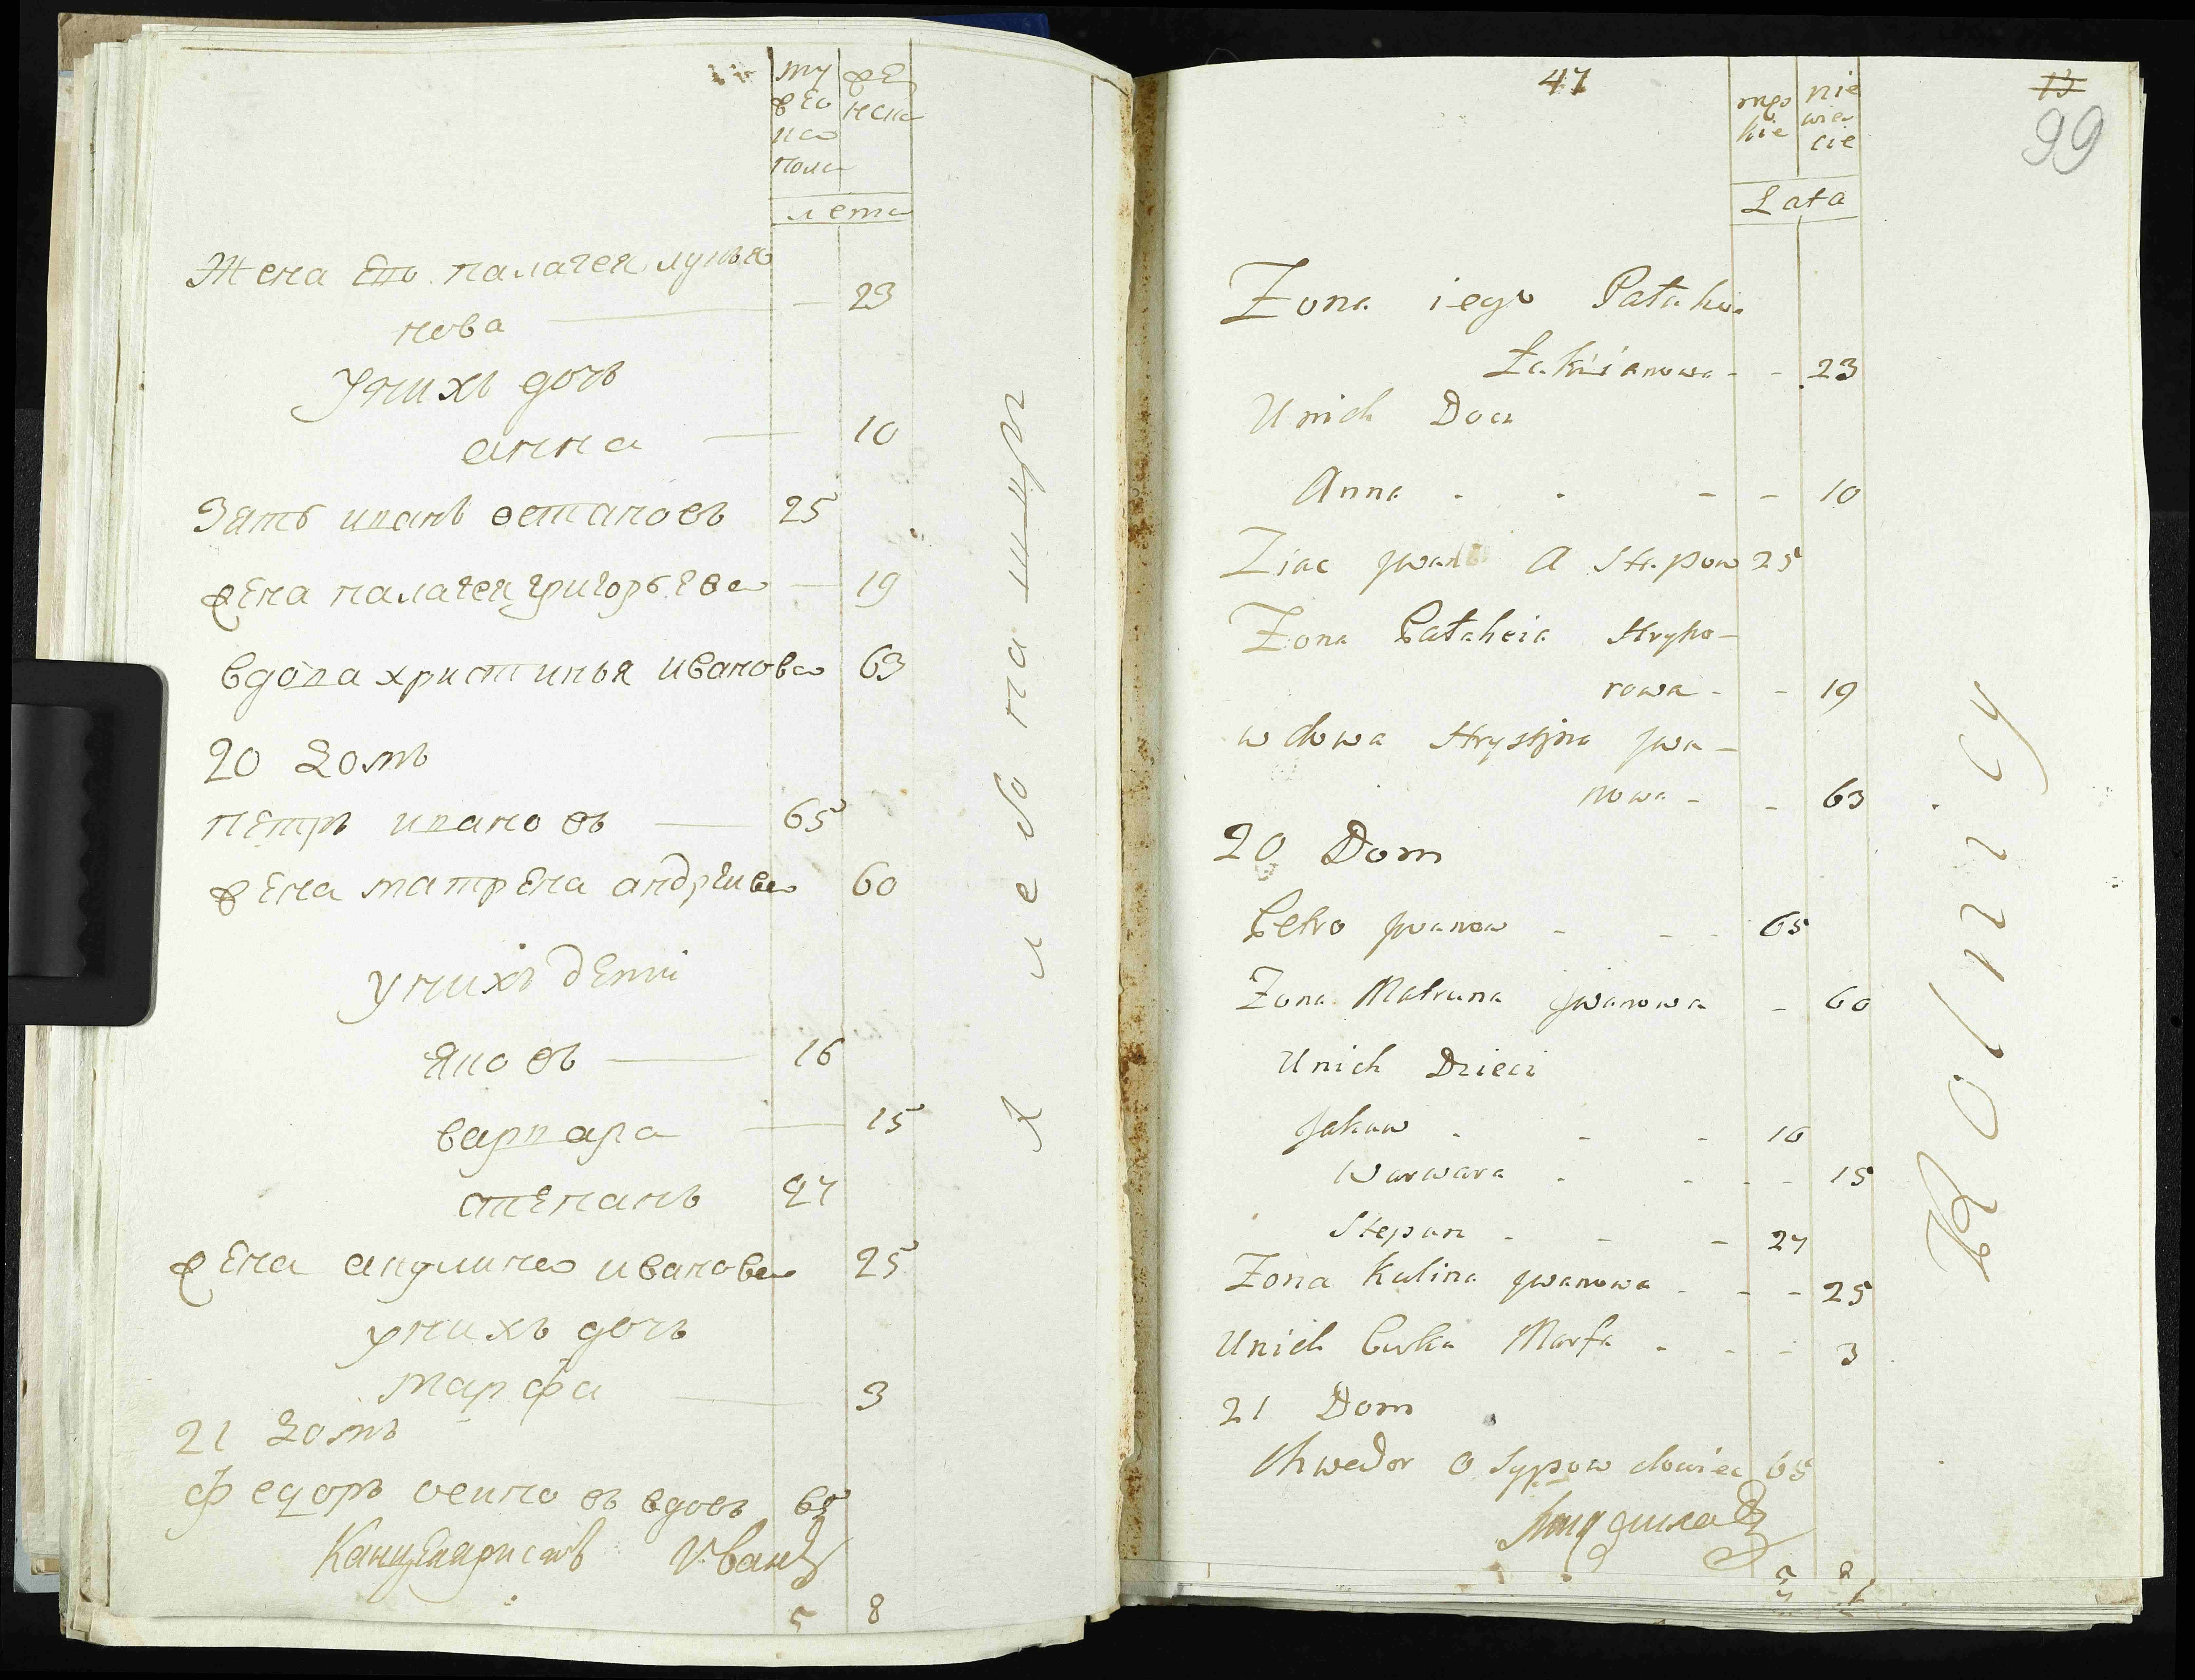 му
жеска
полу
женска
лета
Жена Его палагея лукья
нова — 23
У них дочь
анна — 10
Зять иванъ остаповъ 25
жена палагея григорьева — 19
вдова христинья иванова 63
20 Домъ
Петръ ивановъ — 65
жена матрена андреева 60
у нихъ дети
яковъ — 16
варвара — 15
степанъ 27
жена акулина иванова 25
у нихъ дочь
марфа — 3
21 Домъ
Федоръ осиповъ вдовъ 65
Канцеляристъ Иванъ
5 8
хлебопашцы
47
13
99
męs
kie
nie
wie
cie
Lata
Zona iego Patahia
Łukianowa - - 23
Unich Docz
Anna - - - - 10
Ziac Jwan Astapow 25
Zona Pałaheia Hryho-
rowa - - 19
wdowa Hrystyna Jwa-
nowa - - 63
20 Dom
Petro Jwanow - - - 65
Zona Matruna Jwanowa - 60
Unich Dzieci
Jakow - - - 16
Warwara - - - - 15
Stepan - - - 27
Zona Kulina Jwanowa - - - 25
Unich Curka Marfa - - - 3
21 Dom
Chwedor Osypow dowiec 65
Rolnicy